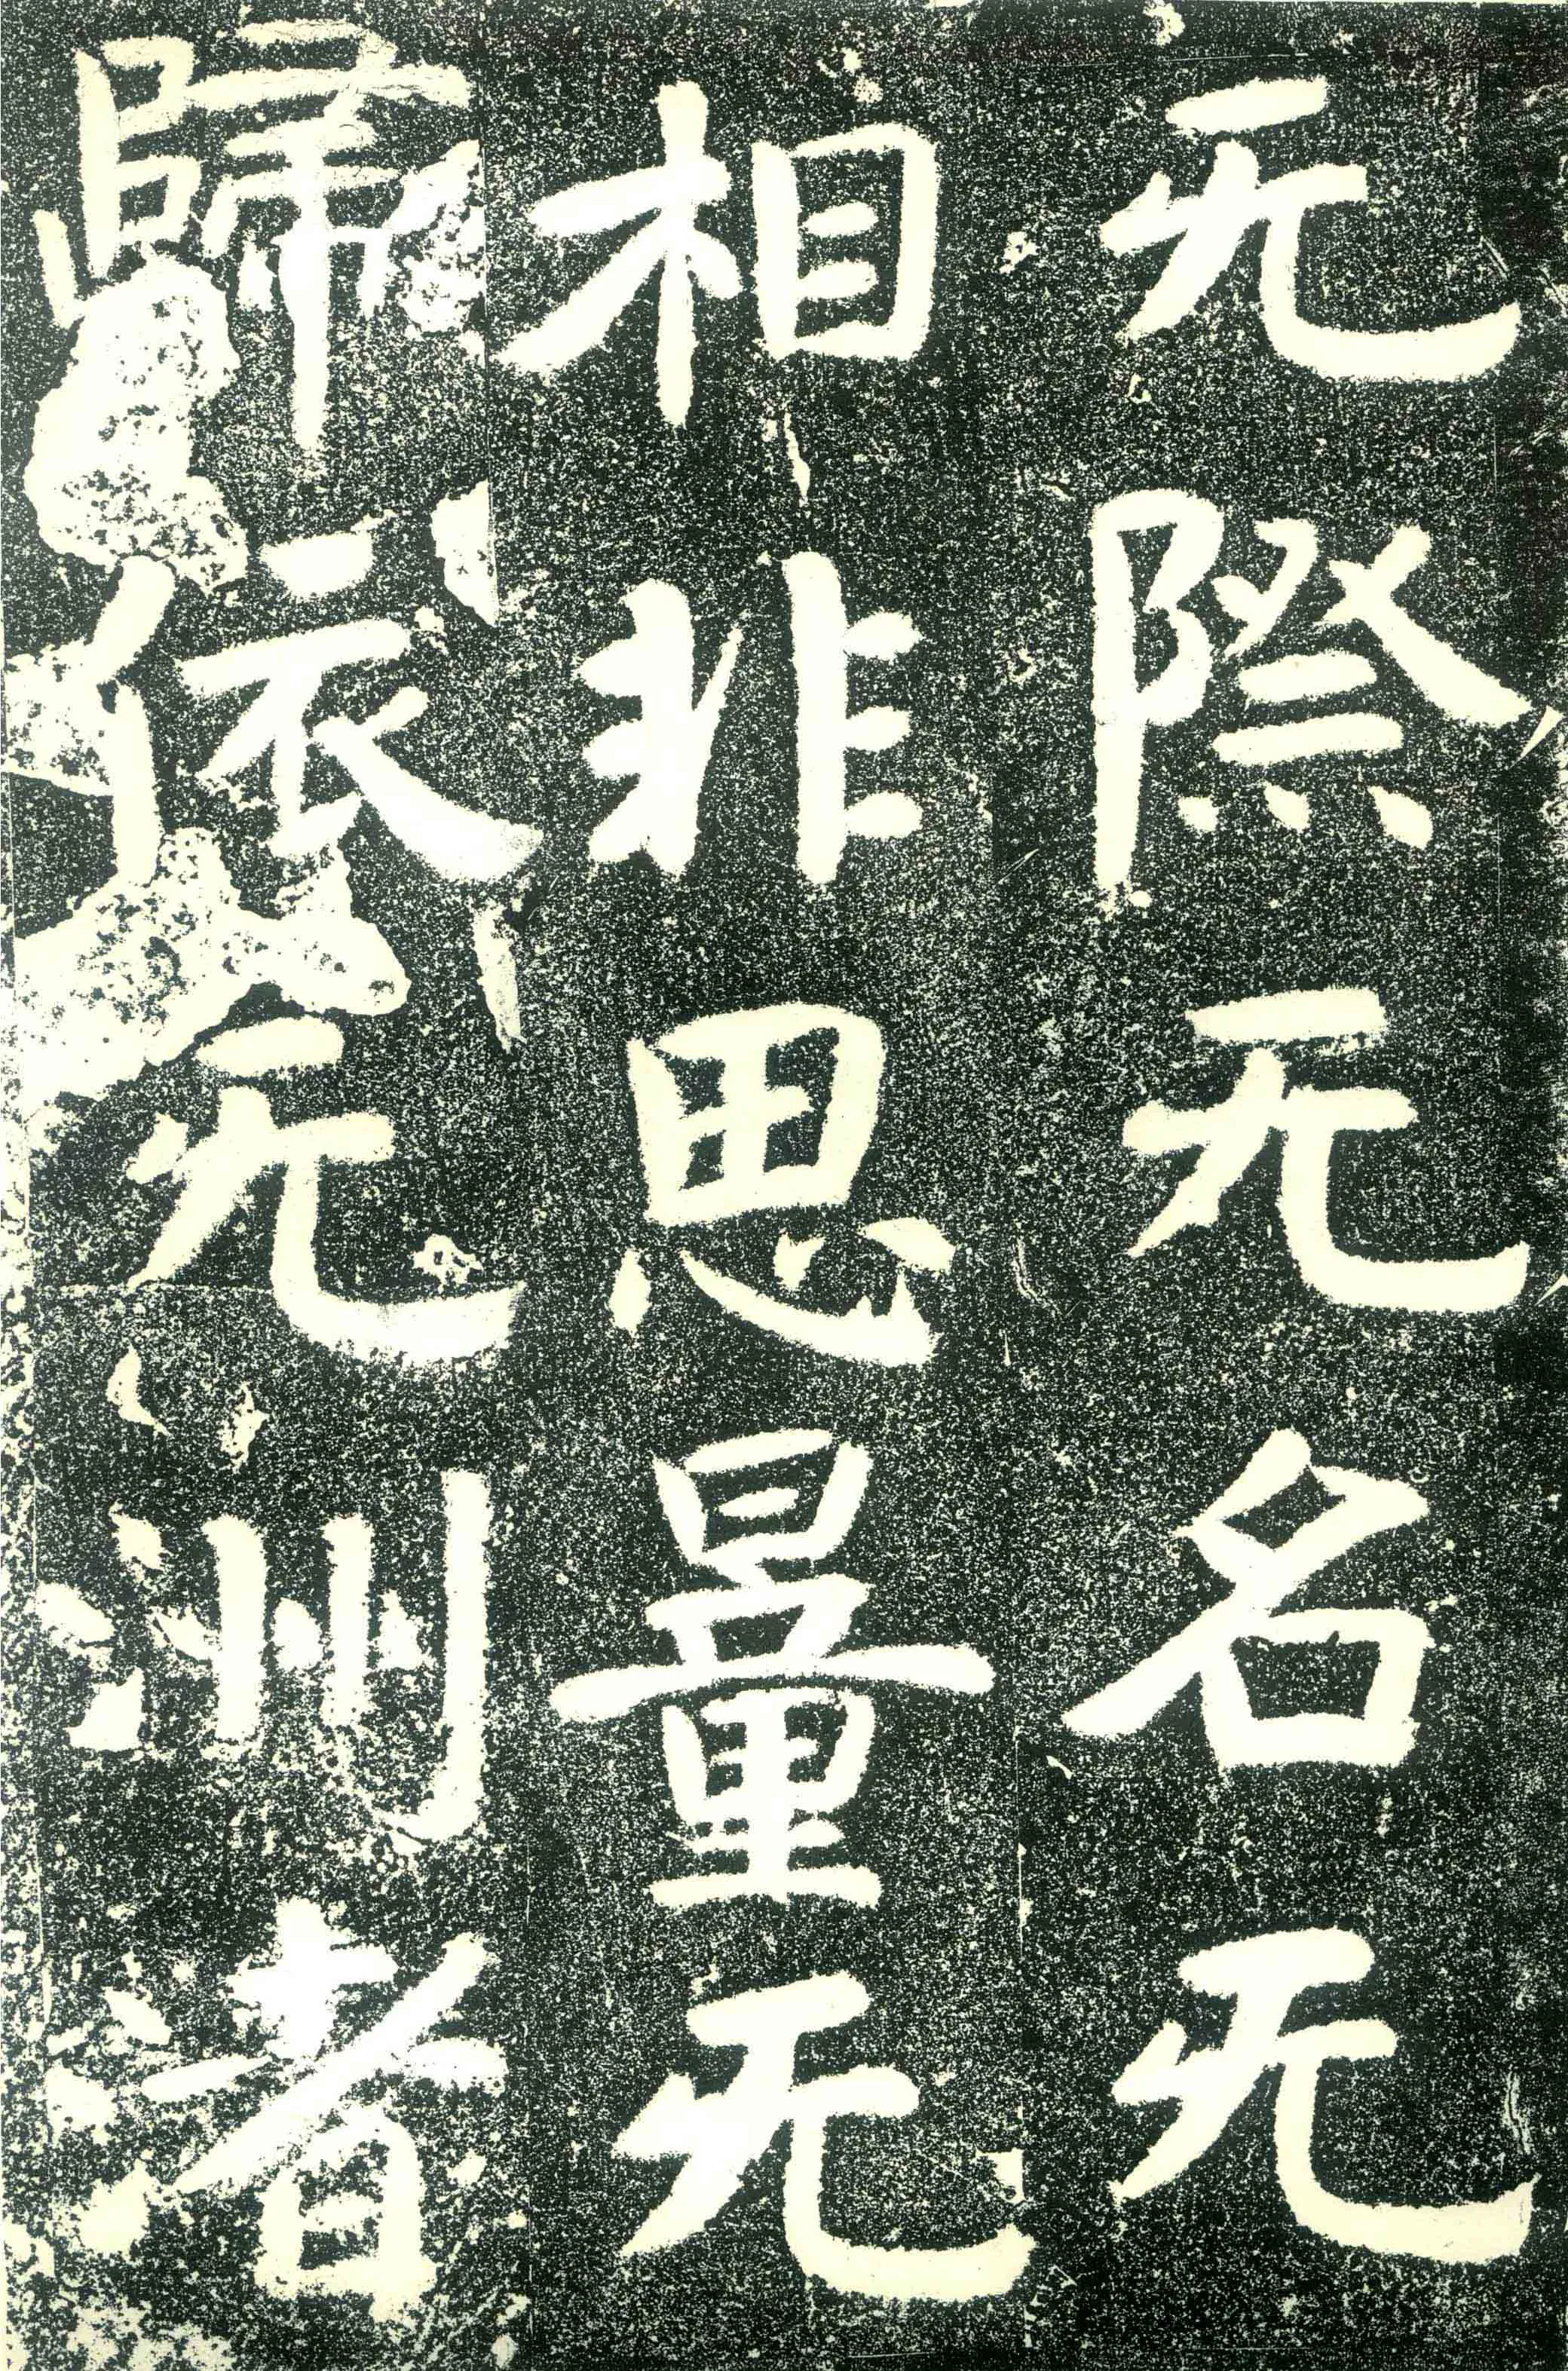 无際无名无
相非思量无
歸依无洲渚